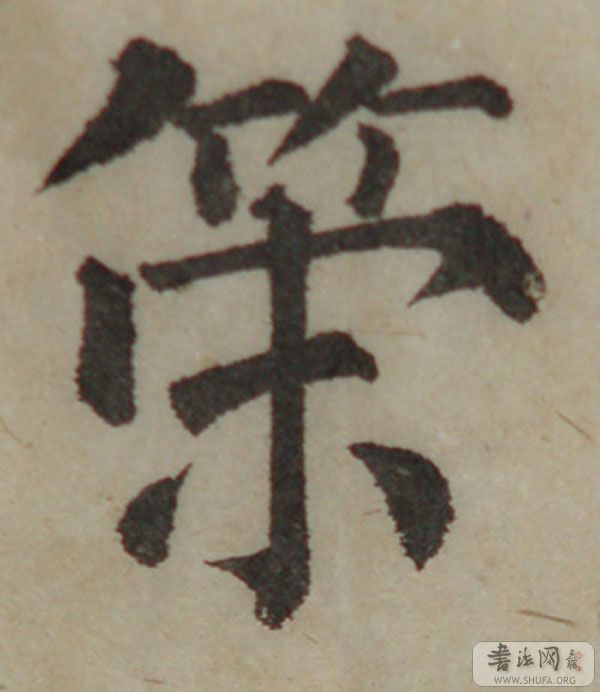 策
書法网
WWW.SHUFA.ORG